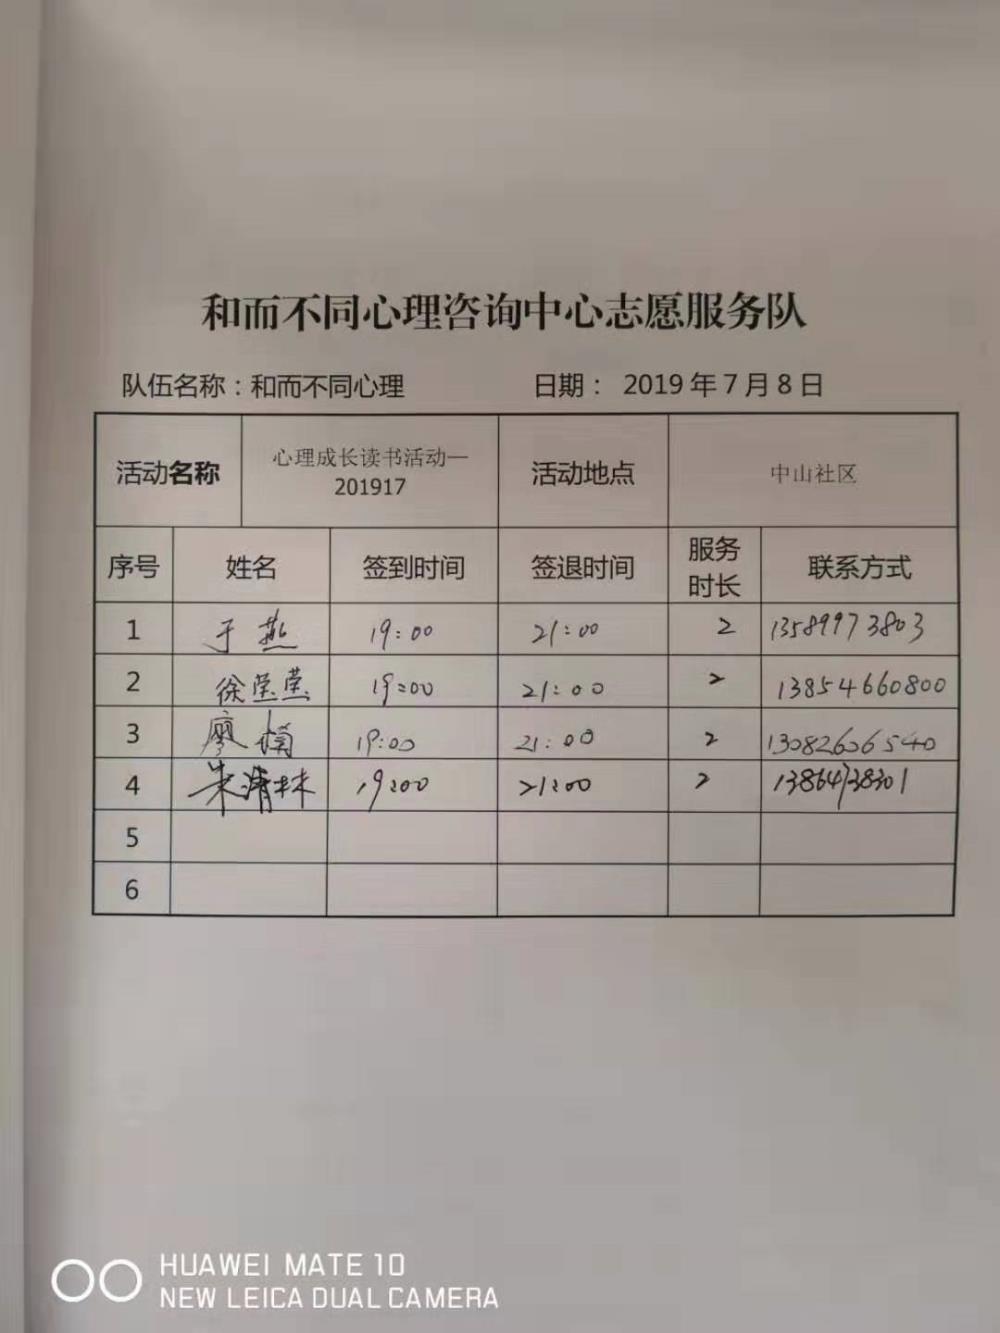 和而不同心理咨询中心志愿服务队
队伍名称：和而不同心理 日期： 2019 年 7 月 8 日
活动名称 心理成长读书活动—201917 活动地点 中山社区
序号 姓名 签到时间 签退时间 服务时长 联系方式
1 于燕 19:00 21:00 2 13589973803
2 徐莹莹 19:00 21:00 2 13854660800
3 廖楠 19:00 21:00 2 13082606540
4 朱清林 19:00 21:00 2
5
6
HUAWEI MATE 10
NEW LEICA DUAL CAMERA